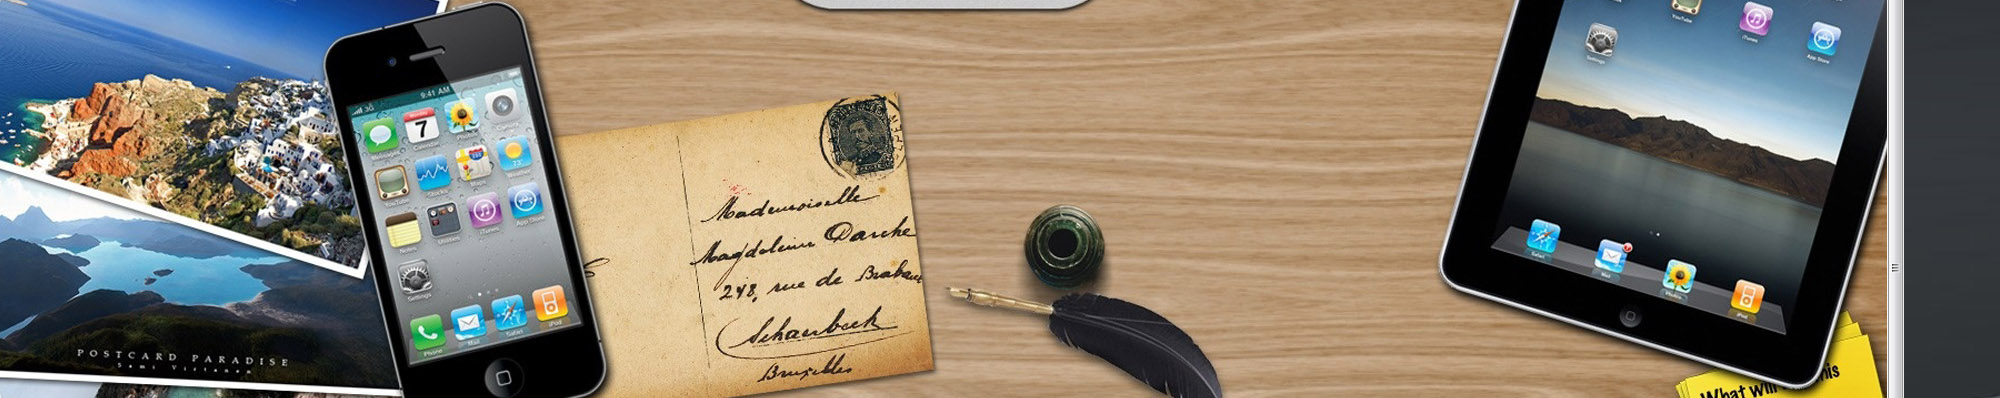 POSTCARD PARADISE
Sami Viitanen
3G
9:41 AM
7
Messages
Calendar
Photos
Camera
YouTube
Stocks
Maps
Weather
73°
Notes
Utilities
iTunes
App Store
Settings
Phone
Mail
Safari
iPod
Mademoiselle
Magdeleine Darche
248, rue de Braban
Schaerbeek
Bruxelles
YouTube
iTunes
App Store
Settings
Safari
Mail
Photos
iPod
What will his